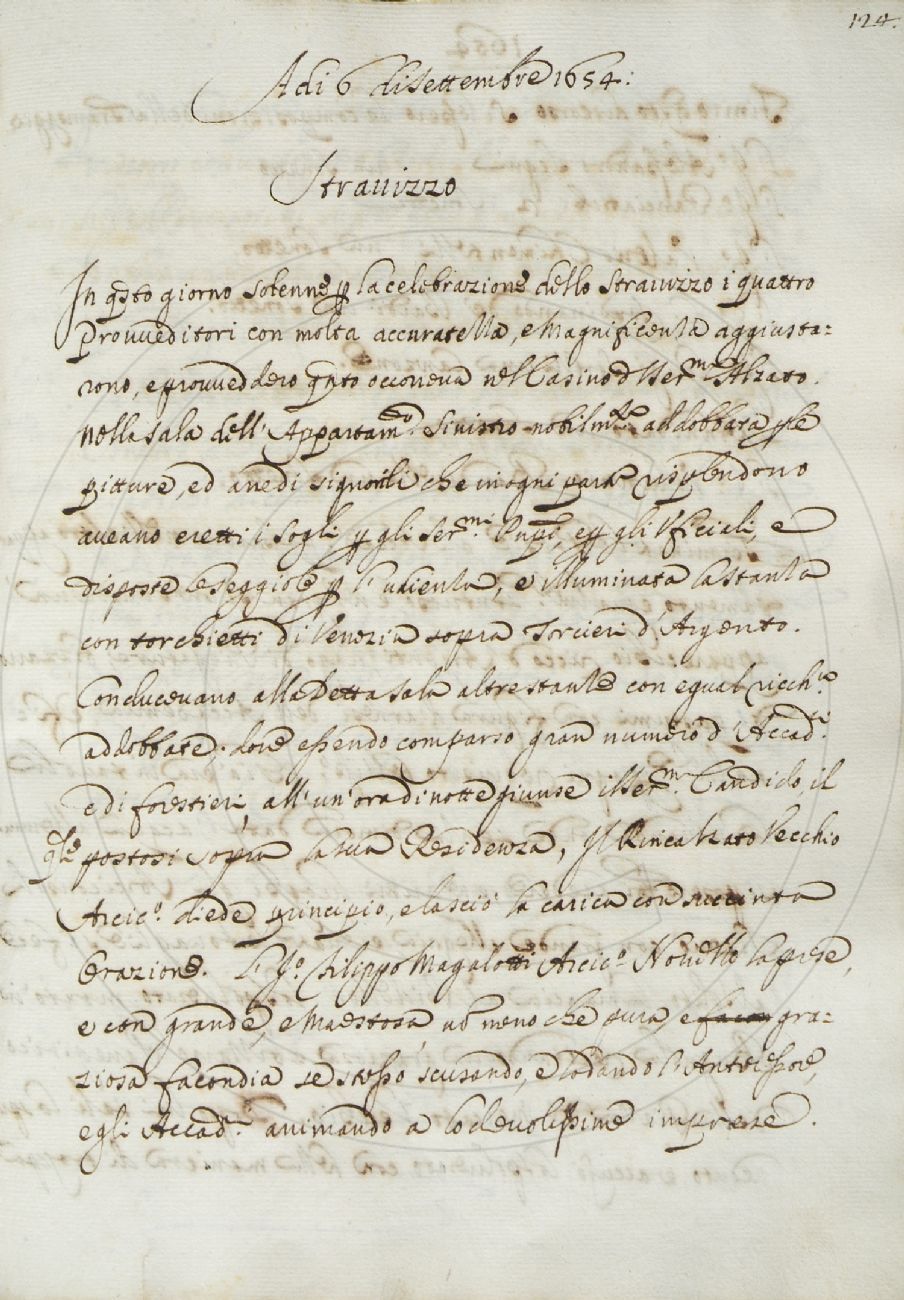 124.
Adi 6 di Settembre 1654.
Strauizzo
In qsto giorno solenne p la celebrazione dello Strauizzo i quattro
Prouueditori con molta accuratezza, e magnificenza aggiusta=
rono, e prouueddero qnto occorreua nel Casino d Ser.mo Alzato.
nella sala dell' Appartam.o Sinistro nobilm.te addobbata p le
pitture, ed arredi signorili che in ogni parte risplendono
aueano eretti i Sogli p gli Ser.mi Prnpi, e p gli Vficiali, e
disposte le seggiole p l' Vdienza, e illuminata la stanza
con torchietti di Venezia sopra Torcieri d' Argento.
Conduceuano alla Detta sala altre stanze con egual ricch.a
addobbate, doue essendo comparso gran numero d' Accad.i
e di forestieri, all' un' ora di notte giunse il Ser.mo Candido, il
qle postosi sopra la sua Residenza, Il Rincalzato Vecchio
Arcic.o diede principio, e lasciò la carica con succinta
Orazione. L' Filippo Magalotti Arcic.o Nouello la prese,
e con grande, e maestosa, nō meno che pura, e gra=
ziosa facondia se stesso scusando, e lodando l' Antecessore,
e gli Accad.i animando a lodeuolissime imprese.